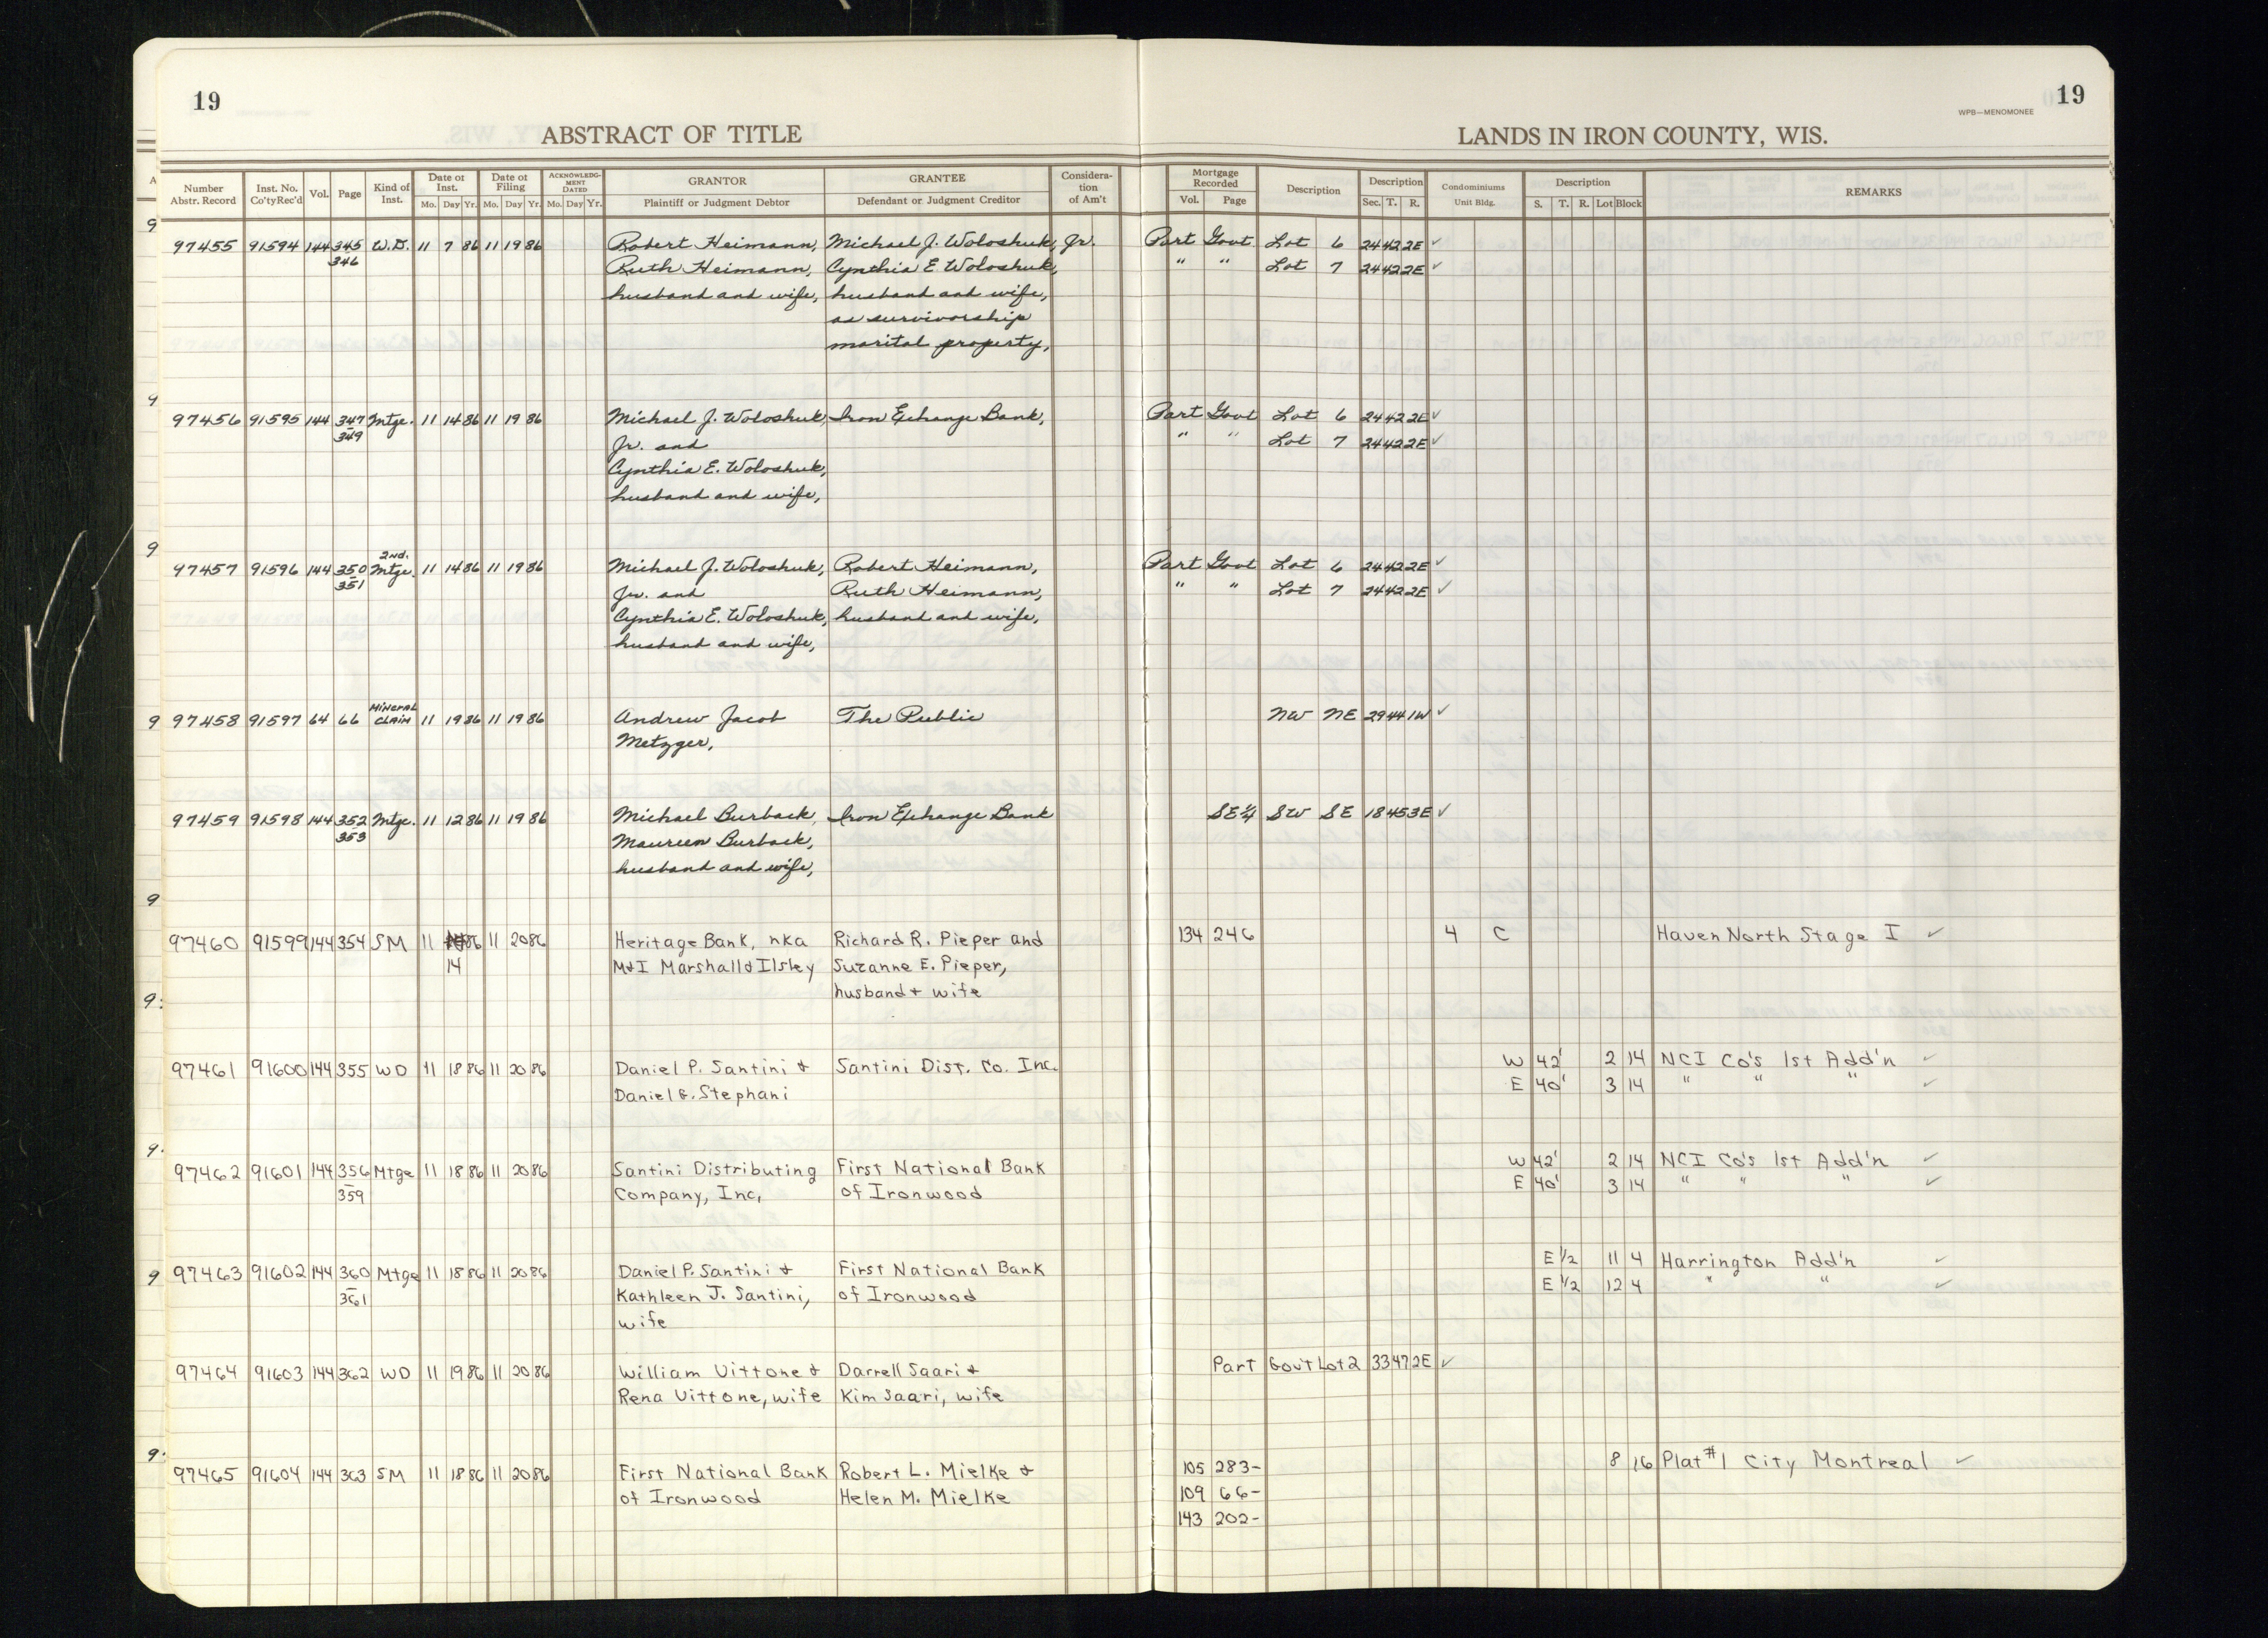 19
19
WPB—MENOMONEE
ABSTRACT OF TITLE
LANDS IN IRON COUNTY, WIS.
Number Abstr. Record | Inst. No. Co'ty Rec'd | Vol. | Page | Kind of Inst. | Date of Inst. Mo. Day Yr. | Date of Filing Mo. Day Yr. | ACKNOWLEDGMENT DATED Mo. Day Yr. | GRANTOR Plaintiff or Judgment Debtor | GRANTEE Defendant or Judgment Creditor | Consideration of Am't | Mortgage Recorded Vol. Page | Description | Description Sec. T. R. | Condominiums Unit Bldg. | Description S. T. R. Lot Block | REMARKS
97455 91594 144 345 W.D. 11 7 86 11 19 86 Robert Heimann, Michael J. Woloshuk, Jr. Part Govt Lot 6 24 42 2E ✓
346 Ruth Heimann, Cynthia E. Woloshuk, " " Lot 7 24 42 2E ✓
husband and wife, husband and wife,
as survivorship
marital property,
97456 91595 144 347 Mtge. 11 14 86 11 19 86 Michael J. Woloshuk, Iron Exchange Bank, Part Govt Lot 6 24 42 2E ✓
349 Jr. and " " Lot 7 24 42 2E ✓
Cynthia E. Woloshuk,
husband and wife,
2nd.
97457 91596 144 350 Mtge. 11 14 86 11 19 86 Michael J. Woloshuk, Robert Heimann, Part Govt Lot 6 24 42 2E ✓
351 Jr. and Ruth Heimann, " " Lot 7 24 42 2E ✓
Cynthia E. Woloshuk, husband and wife,
husband and wife,
Mineral
97458 91597 64 66 Claim 11 19 86 11 19 86 Andrew Jacob The Public NW NE 29 44 1W ✓
Metzger,
97459 91598 144 352 Mtge. 11 12 86 11 19 86 Michael Burback, Iron Exchange Bank SE¼ SW SE 18 45 3E ✓
353 Maureen Burback,
husband and wife,
97460 91599 144 354 SM 11 86 11 20 86 Heritage Bank, nka Richard R. Pieper and 134 246 4 C Haven North Stage I ✓
14 M&I Marshall & Ilsley Suzanne E. Pieper,
husband & wife
97461 91600 144 355 WD 11 18 86 11 20 86 Daniel P. Santini & Santini Dist. Co. Inc. W 42' 2 14 NCI Co's 1st Add'n ✓
Daniel G. Stephani E 40' 3 14 " " " ✓
97462 91601 144 356 Mtge 11 18 86 11 20 86 Santini Distributing First National Bank W 42' 2 14 NCI Co's 1st Add'n ✓
359 Company, Inc, of Ironwood E 40' 3 14 " " " ✓
97463 91602 144 360 Mtge 11 18 86 11 20 86 Daniel P. Santini & First National Bank E ½ 11 4 Harrington Add'n ✓
361 Kathleen J. Santini, of Ironwood E ½ 12 4 " " ✓
wife
97464 91603 144 362 WD 11 19 86 11 20 86 William Vittone & Darrell Saari & Part Gov't Lot 2 33 47 2E ✓
Rena Vittone, wife Kim Saari, wife
97465 91604 144 363 SM 11 18 86 11 20 86 First National Bank Robert L. Mielke & 105 283- 8 16 Plat #1 City Montreal ✓
of Ironwood Helen M. Mielke 109 66-
143 202-